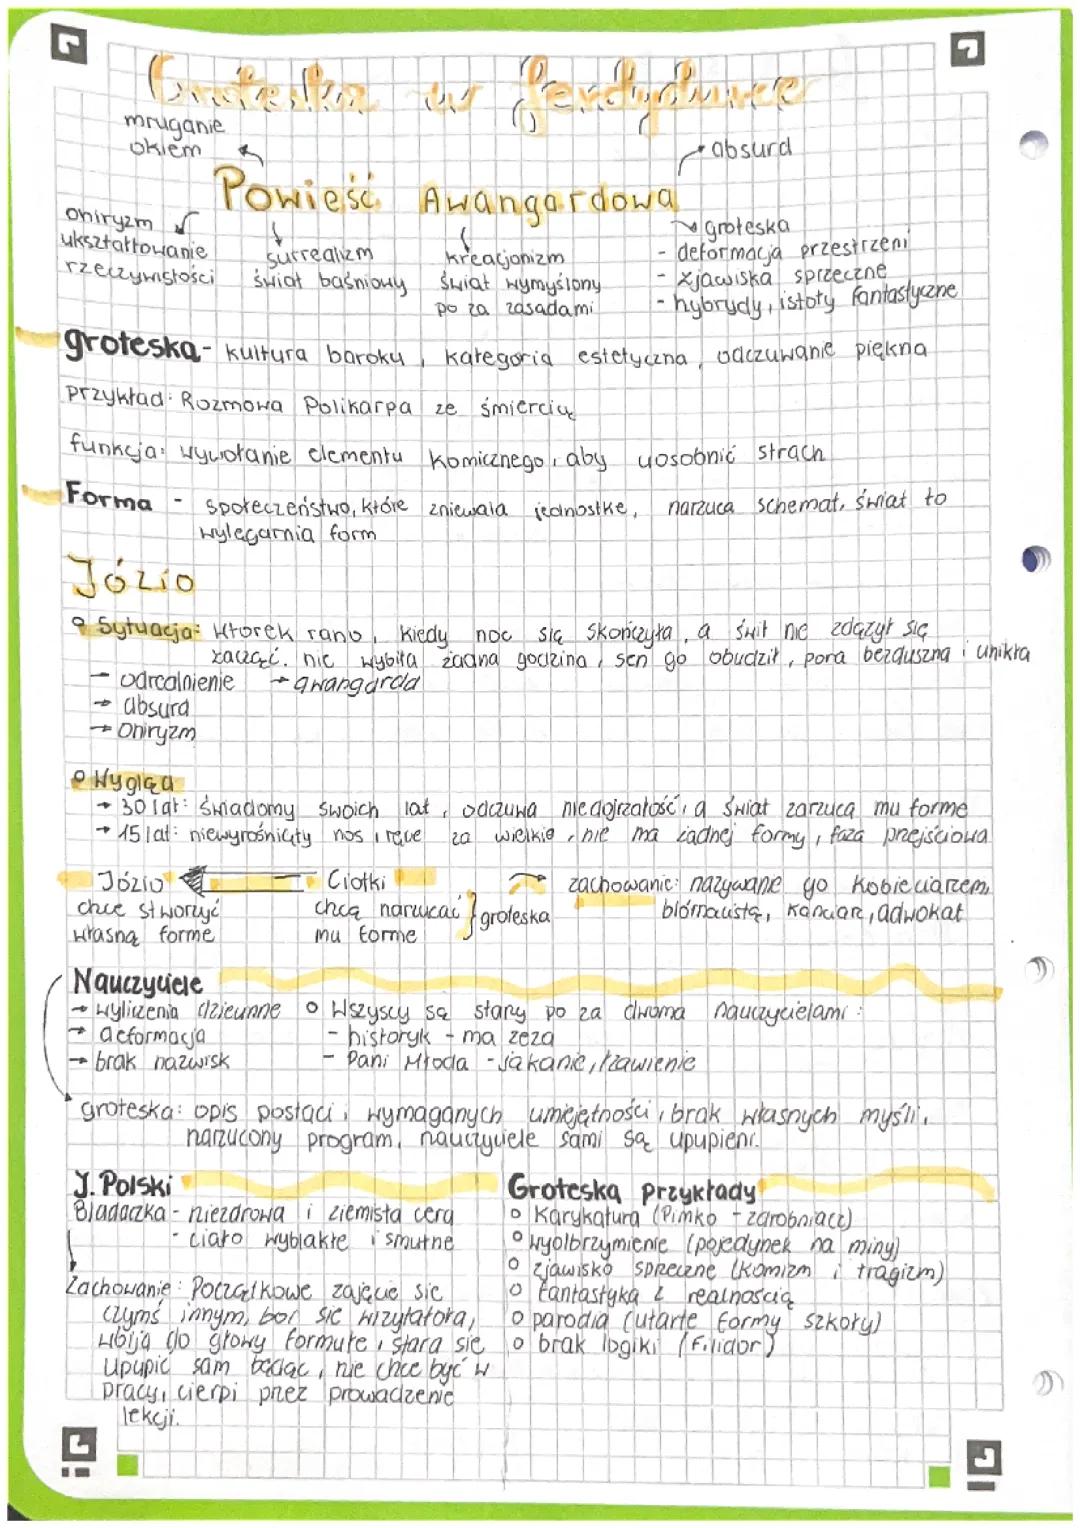 Groteska w Ferdydurce
mruganie
okiem
absurd
Powieść Awangardowa
oniryzm
ukształtowanie
rzeczywistości
surrealizm
świat baśniowy
kreacjonizm
świat wymyślony
po za zasadami
groteska
- deformacja przestrzeni
- zjawiska sprzeczne
- hybrydy, istoty fantastyczne
groteska - kultura baroku, kategoria estetyczna, odczuwanie piękna
przykład: Rozmowa Polikarpa ze śmiercią
funkcja: wywołanie elementu komicznego, aby uosobnić strach
Forma - społeczeństwo, które zniewala jednostkę, narzuca schemat, świat to
wylęgarnia form
Józio
Sytuacja: Wtorek rano, kiedy noc się skończyła, a świt nie zdążył się
zacząć. nie wybiła żadna godzina, sen go obudził, pora bezduszna i unikła
→ odrealnienie → awangarda
→ absurd
→ Oniryzm
Wygląd
→ 30 lat: świadomy swoich lat, odczuwa niedojrzałość, a świat zarzuca mu formę
→ 15 lat: niewyrośnięty nos, ręce za wielkie, nie ma żadnej formy, faza przejściowa
Józio
chce stworzyć
własną formę
Ciotki
chcą narzucać
mu formę
groteska
zachowanie: nazywanie go kobieciarzem,
adwokat
Nauczyciele
→ wyliczenia dziwne
→ deformacja
→ brak nazwisk
Wszyscy są starzy po za dwoma nauczycielami:
- historyk - ma zeza
- Pani Młoda - jąkanie, łzawienie
groteska: opis postaci, wymaganych umiejętności, brak własnych myśli,
narzucony program, nauczyciele sami są upupieni.
J. Polski
Bladaczka - niezdrowa i ziemista cera
- ciało wyblakłe i smutne
Zachowanie: Początkowe zajęcie się
czymś innym, boi się wizytatora,
wbija do głowy formułę, stara się
upupić sam będąc, nie chce być w
pracy, cierpi przez prowadzenie
lekcji.
Groteska przykłady
Karykatura (Pimko - zdrobniace)
wyolbrzymienie (pojedynek na miny)
zjawisko sprzeczne (komizm i tragizm)
fantastyka z realnością
parodia (utarte formy szkoły)
brak logiki (Filidor)